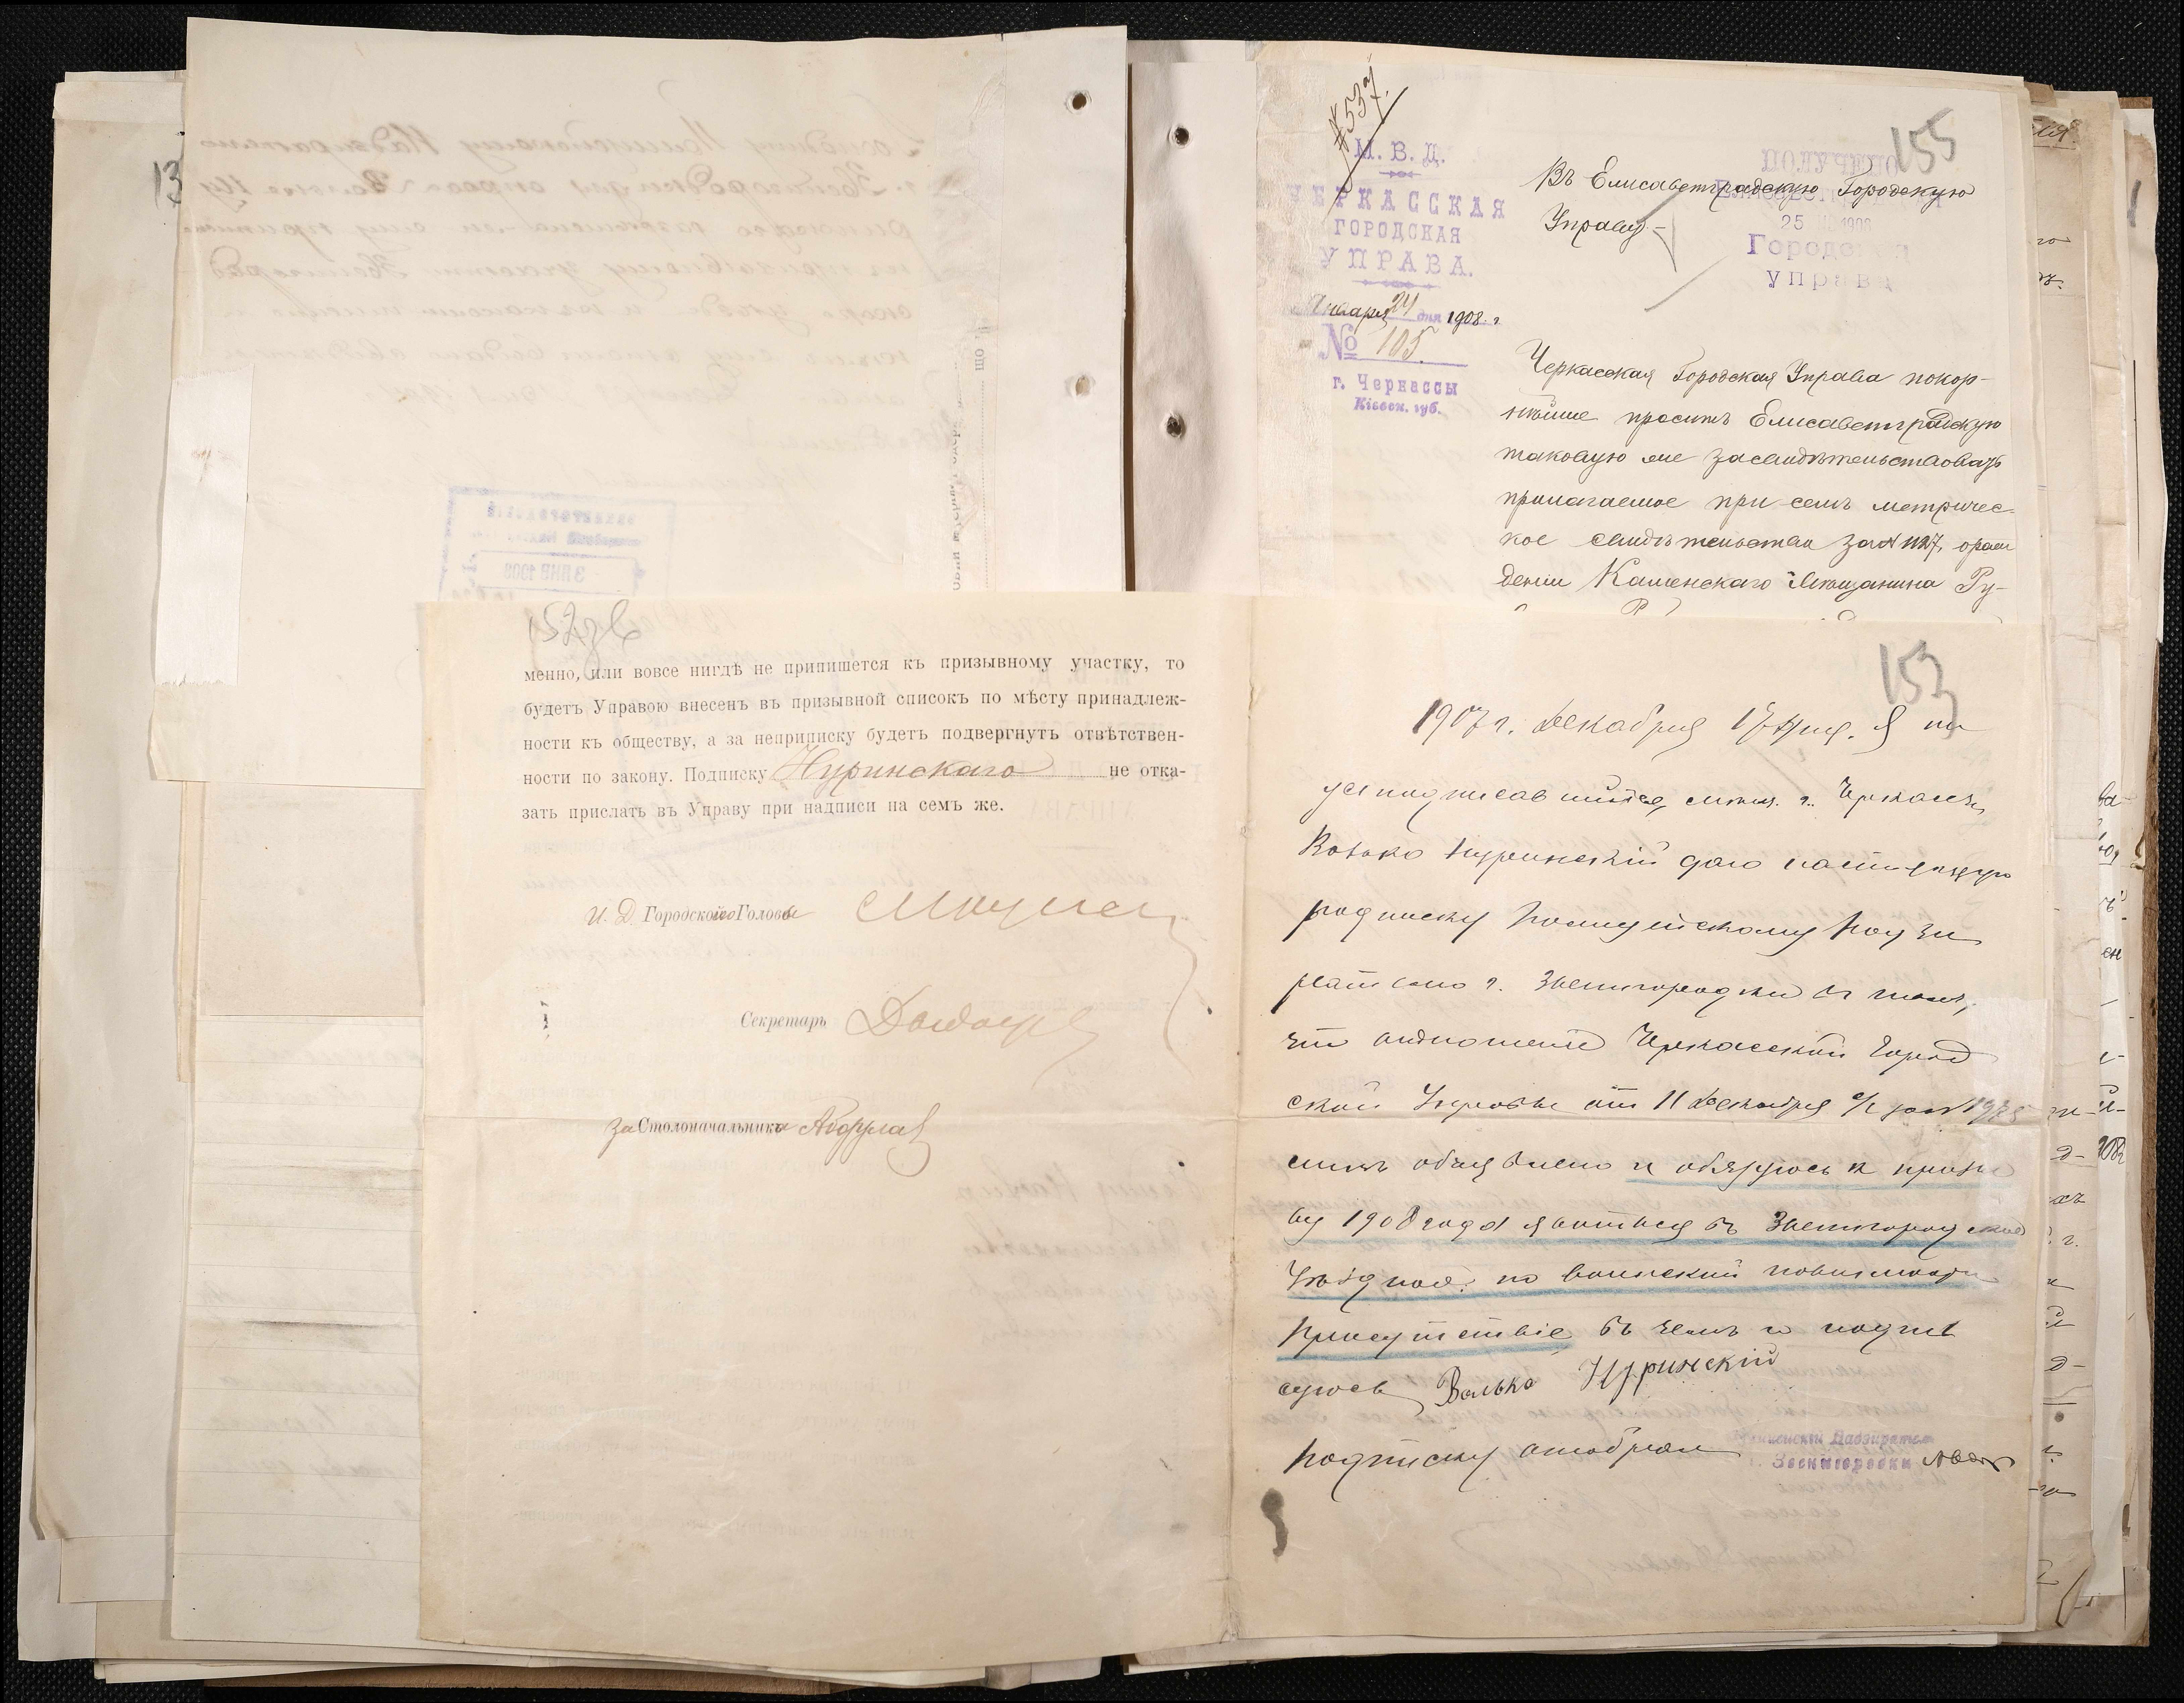 13
№ 537.
М. В. Д.
ЧЕРКАССКАЯ
ГОРОДСКАЯ
УПРАВА.
Января 24 дня 1908 г.
№ 105.
г. Черкассы
Кіевск. губ.
155
ПОЛУЧЕНО
25 1908
Городс
управа
Въ Елисаветградскую Городскую
Управу
Черкасская Городская Управа покор-
нѣйше проситъ Елисаветградскую
таковую же засвидѣтельствовать
прилагаемое при семъ метричес-
кое свидѣтельство за № 1127, о рож
деніи Каменскаго мѣщанина Ру-
152
менно, или вовсе нигдѣ не припишется къ призывному участку, то
будетъ Управою внесенъ въ призывной списокъ по мѣсту принадлеж-
ности къ обществу, а за неприписку будетъ подвергнутъ отвѣтствен-
ности по закону. Подписку Нуринскаго не отка-
зать прислать въ Управу при надписи на семъ же.
И. Д. Городского Головы
Секретарь
За Столоначальника
153
1907 г. Декабря 17 дня. Я ни
жеподписавшійся, мѣщ. г. Черкассъ,
Волько Нуринскій далъ настоящую
подписку Полицейскому Надзи
рателю г. Звенигородки въ томъ,
что отношеніе Черкасской Город
ской Управы от 11 Декабря с/г за №
мнѣ объявлено и обязуюсь к призы
ву 1908 года явиться въ Звенигородское
Уѣздное по воинской повинности
Присутствіе въ чемъ и подпи
суюсь Волько Нуринскій
Подписку отобралъ
Полицейскій Надзиратель
г. Звенигородки